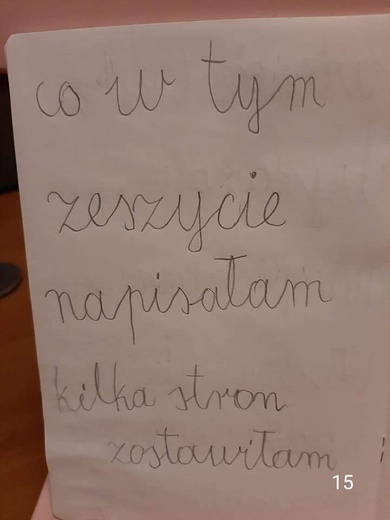 co w tym
zeszycie
napisałam
kilka stron
zostawiłam
15